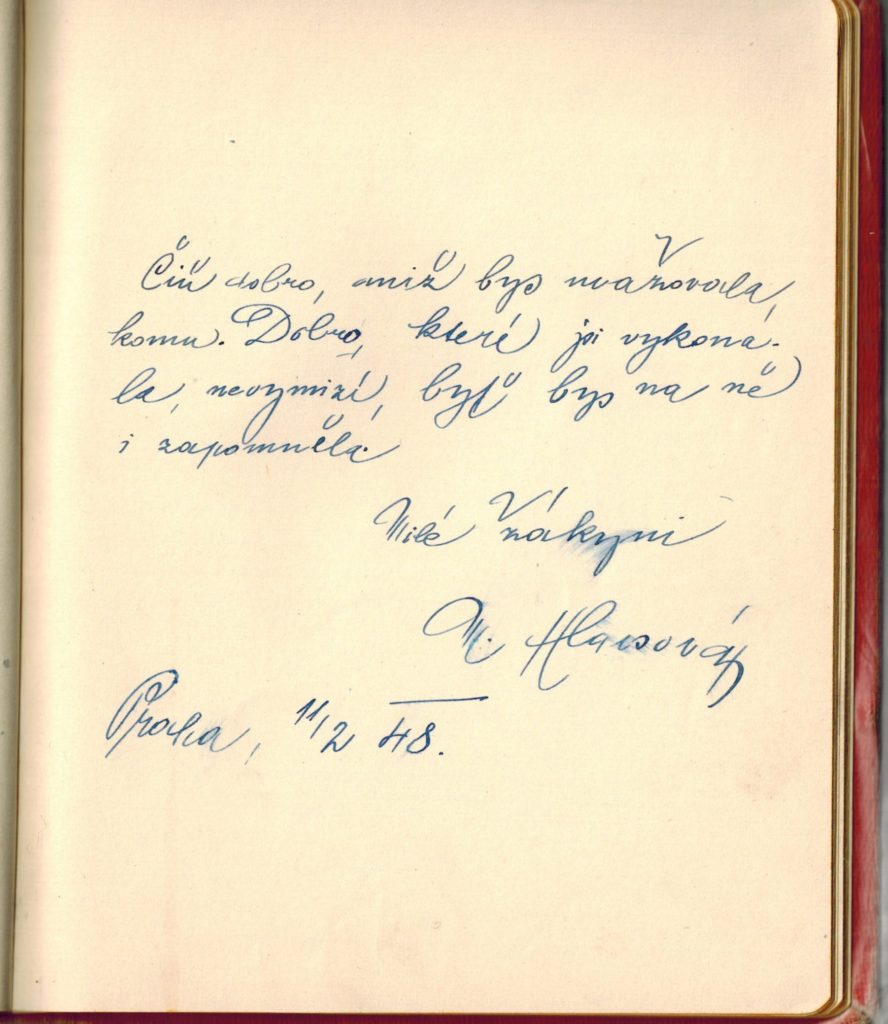 Čiň dobro, aniž bys uvažovala,
komu. Dobro, které jsi vykoná-
la, nevymizí, byť bys na ně
i zapomněla.
Milé žákyni
M.
Praha, 11/2 48.